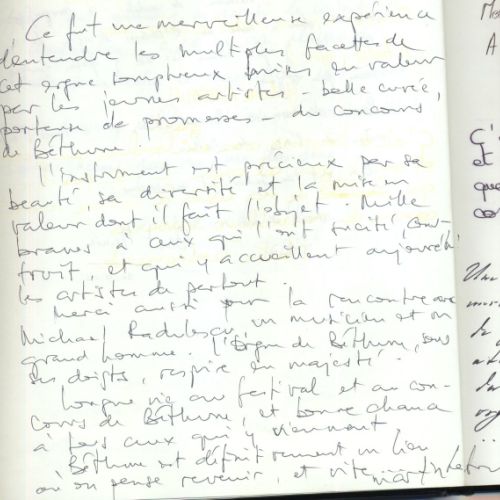 Ce fut une merveilleuse expérience
d'entendre les multiples facettes de
cet orgue somptueux mises en valeur
par les jeunes artistes - belle cuvée,
porteuse de promesses - du concours
de Béthune.
L'instrument est précieux par sa
beauté, sa diversité et la mise en
valeur dont il fait l'objet. Mille
bravos à ceux qui l'ont
et qui y accueillent aujourd'hui
les artistes de partout.
Merci aussi pour la rencontre avec
Michael Radulescu, un musicien et un
grand homme. L'orgue de Béthune, sous
ses doigts, respire en majesté.
Longue vie au festival et au con-
cours de Béthune, et bonne chance
à tous ceux qui y viennent.
Béthune est définitivement un lieu
où on pense revenir, et vite
Me
A
C'
et
que
Une